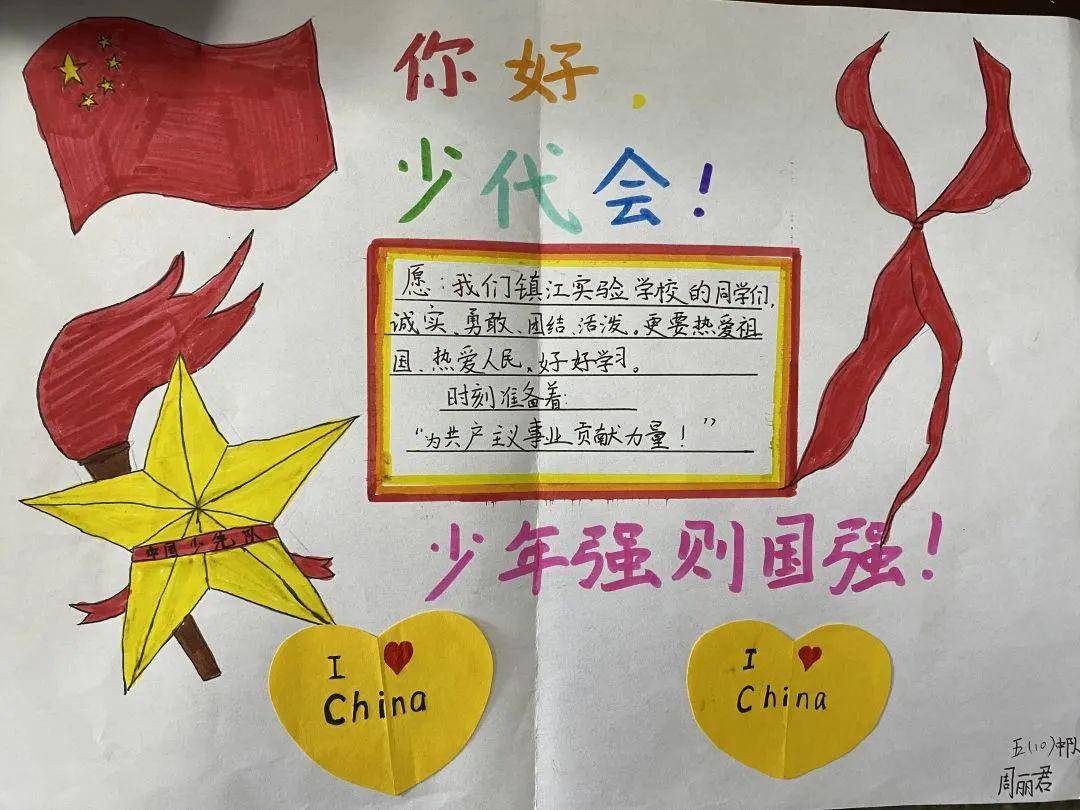 你好，
少代会！
愿：我们镇江实验学校的同学们，
诚实、勇敢、团结、活泼。更要热爱祖
国、热爱人民、好好学习。
时刻准备着：
“为共产主义事业贡献力量！”
少年强则国强！
中国少先队
I ❤
China
I ❤
China
五(10)中队
周丽君